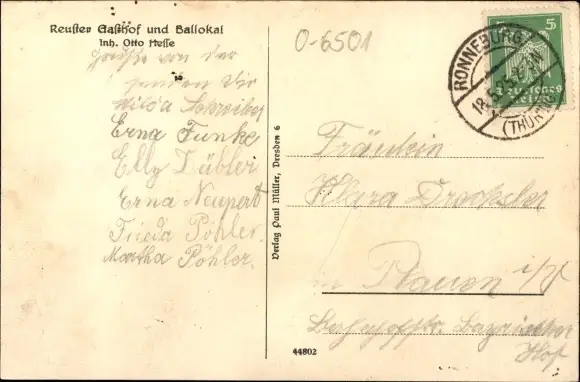 Reuster Gasthof und Ballokal
Inh. Otto Hesse
Grüße von der
senden Dir
Hilda Schreiber
Erna Funke
Elly Dübler
Erna Neupert
Frieda Pöhler.
Martha Pöhler.
Verlag Paul Müller, Dresden 6
44802
0-6501
RONNEBURG
(THÜR)
5 5
Deutsches
Reich
Fräulein
Klara Drechsler
in Plauen i/V
Bahnhofstr. Bayrischer
Hof